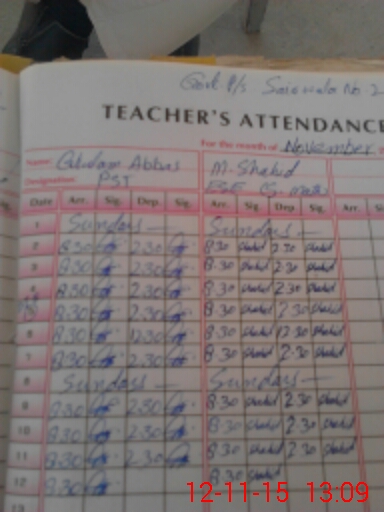 Govt. P/S Saiowala No. 2
TEACHER'S ATTENDANCE
For the month of November
Name: Ghulam Abbas M. Shahid
Designation: PST ESE (S. math)
Date Arr. Sig. Dep. Sig. Arr. Sig. Dep Sig. Arr. Sig
1 Sunday — Sunday —
2 8.30 2.30 8.30 Shahid 2.30 Shahid
3 8.30 2.30 8.30 Shahid 2.30 Shahid
4 8.30 2.30 8.30 Shahid 2.30 Shahid
5 8.30 2.30 8.30 Shahid 2.30 Shahid
6 8.30 12.30 8.30 Shahid 12.30 Shahid
7 8.30 2.30 8.30 Shahid 2.30 Shahid
8 Sunday — Sunday —
9 8.30 2.30 8.30 Shahid 2.30 Shahid
10 8.30 2.30 8.30 Shahid 2.30 Shahid
11 8.30 2.30 8.30 Shahid 2.30 Shahid
12 8.30 8.30 Shahid
13
12-11-15 13:09